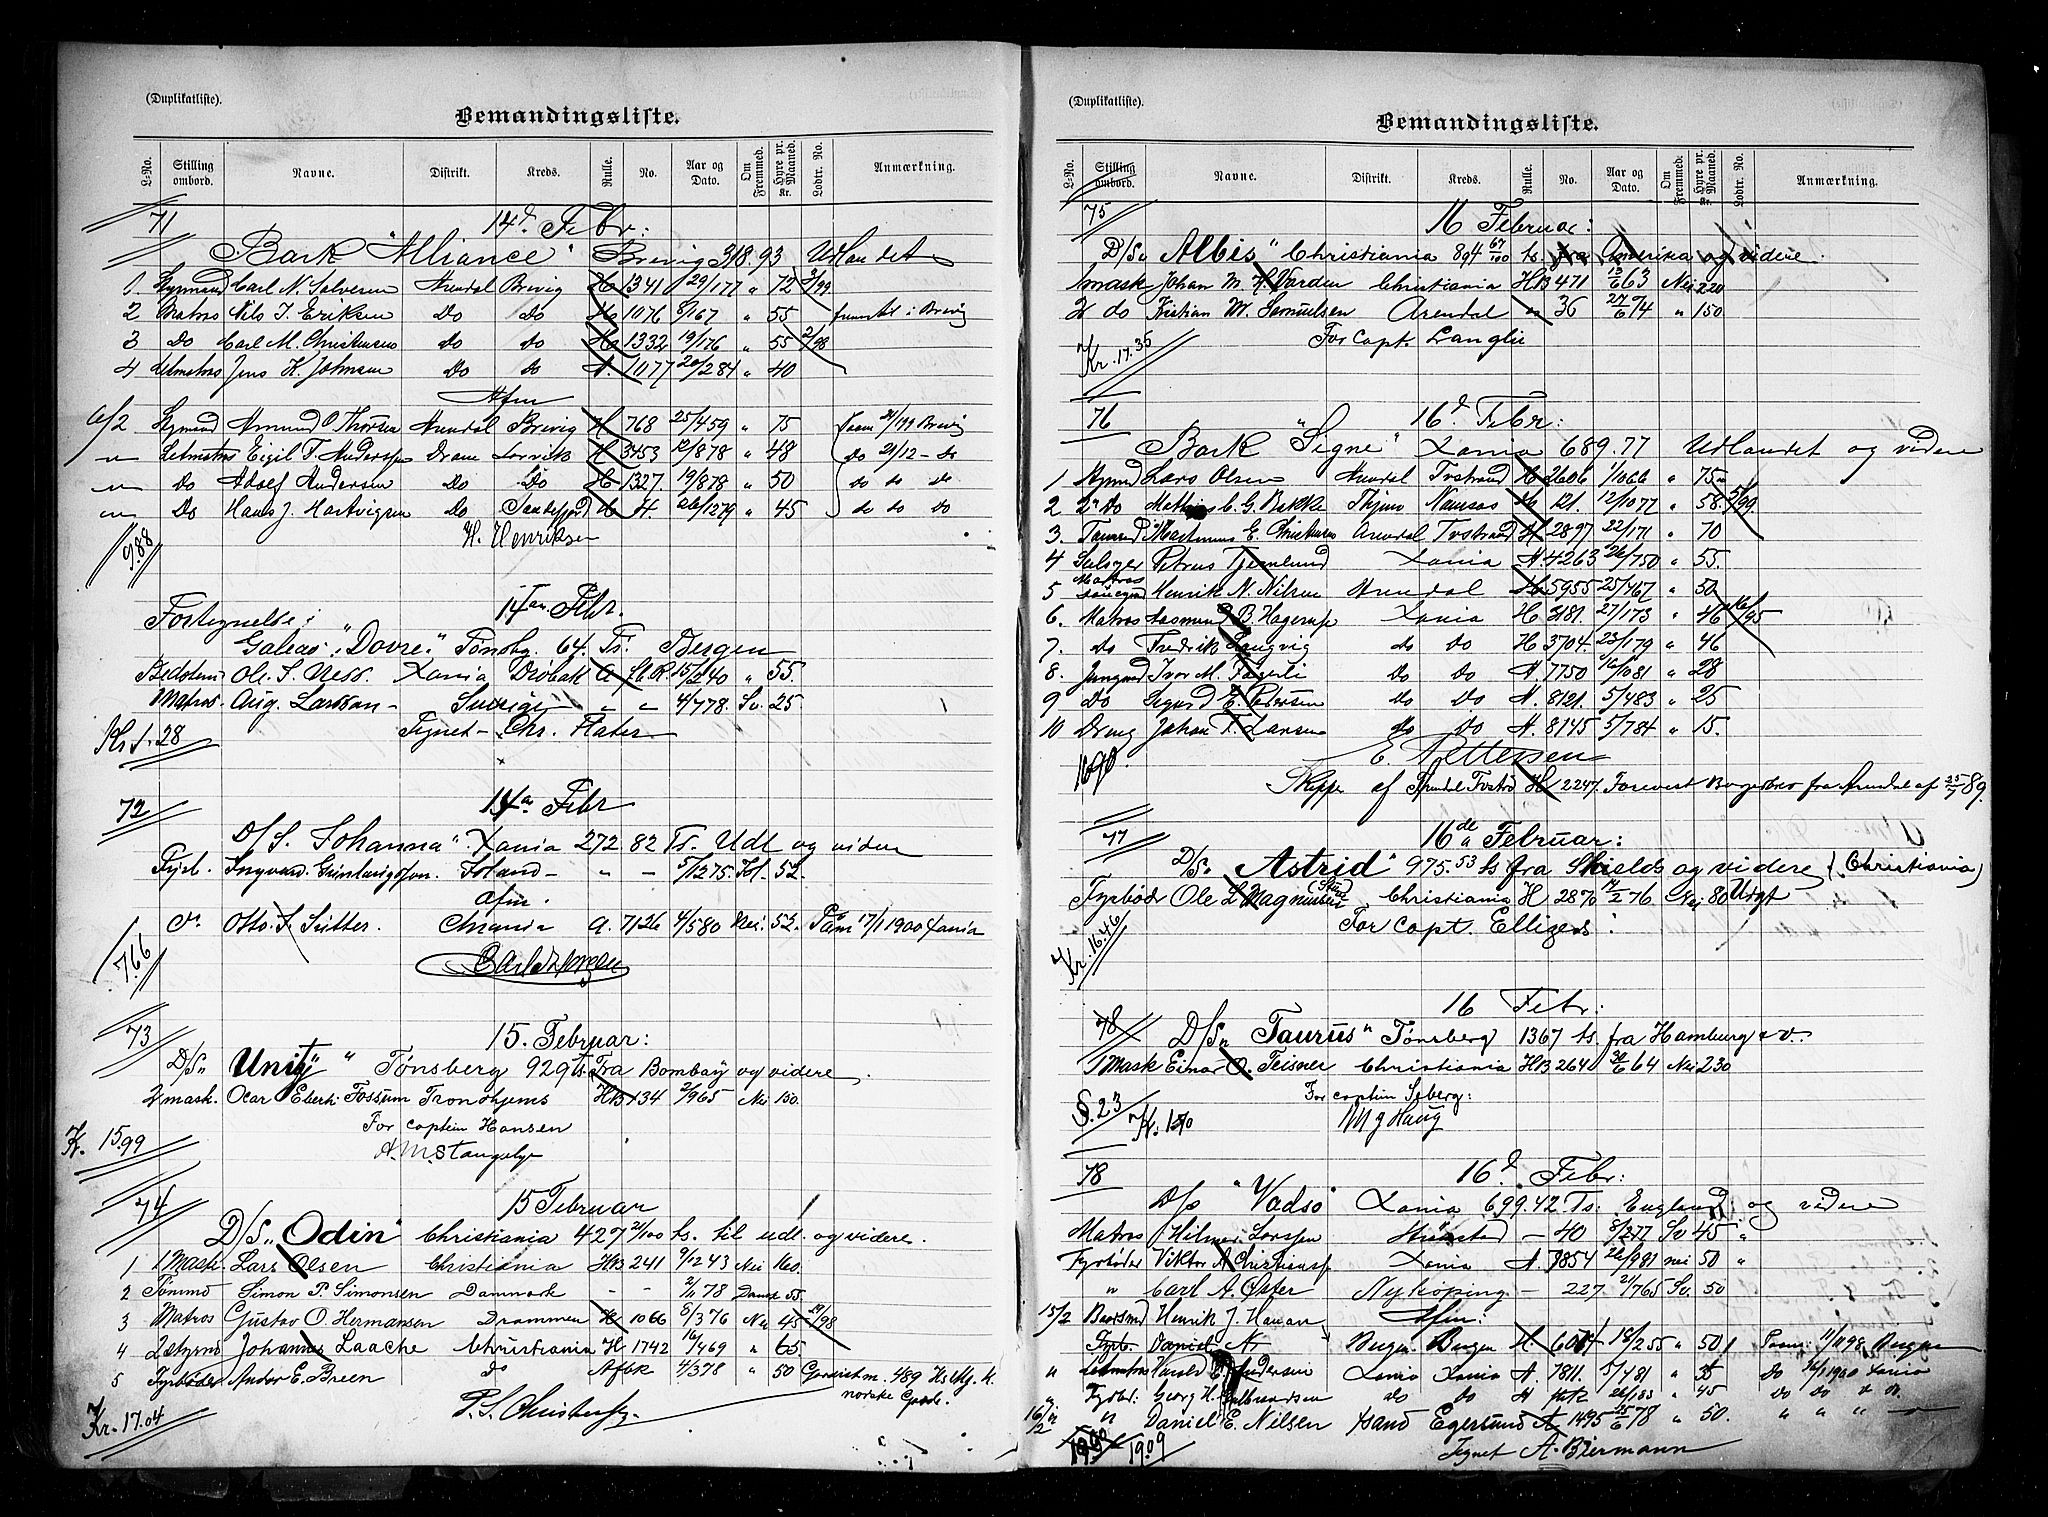 (Duplikatliste).
Bemandingsliste.
L-No. Stilling ombord. Navne. Distrikt. Kreds. Rulle. No. Aar og Dato. Om Fremmed. Hyre pr. Maaned. Kr. Lodtr. No. Anmærkning.
71 14d Febr:
Bark "Alliance" Brevig 318.93 Udlandet
1 Styrmand Carl N. Salvesen Arendal Brevig H 1341 29/1 77 " 72 3/99
2 Matros Nils J. Eriksen Do Do H 1076 8/1 67 " 55 i Brevig
3 Do Carl M. Christensen Do Do H 1332 19/1 76 " 55 2/98
4 Letmatros Jens K. Johnsen Do Do A. 1077 20/2 84 " 40
Afm
6/2 Stymand Amund O Thorsen Arendal Brevig H 768 25/4 59 " 75 Brevig
" Letmatros Eigil F. Anderssen Dram Lorvik H 3453 12/8 78 " 48 Do 21/12 - do
" Do Adolf Andersen Do Do H 1327 19/8 78 " 50 do do do
" Do Hans J. Hartvigsen Do Sandefjord H 4. 26/12 79 " 45 do do do
9.88 H. Henriksen
14de Febr.
Fortegnelse i
Galeas "Dovre" Tønsbg. 64. Ts. Bergen
Bedstem Ole S. Ness. Xania Drøbak A fl. R. 15/2 40 " 55.
Matros. Aug. Larsson - Sverige - " " 4/7 78. Sv. 25
Kr 1.28 Tegnet - Chr. Flater
72 14de Febr
D/S. Johanna" Xania 272 82 Ts. Udl og videre
Fyrb. Ingvard. Island - " - 5/12 75. Isl. 52.
Afm.
do Otto. S. Sutter. Chrania A. 7126 4/5 80 Nei. 52. Paam 17/1 1900 Xania
7.66
73 15. Februar:
D/S" Unity" Tønsberg 929 ts. Fra Bombay og videre
2 mask. Oscar Ebert: Fossum Trondhjems HB 134 2/9 65 Nei 130.
For captein Hansen
K. 15.99 A. M. Stangebye
74 15 Februar
D/S" Odin" Christiania 427 21/100 ts. til udl. og videre.
1 1 Mask Lars Olsen Christiania HB 241 9/12 43 Nei 160.
2 Tømmd Simon P. Simonsen Danmark - - 2/11 78 Dansk 55.
3 Matros Gustav O. Hermansen Drammen H 1066 8/3 76 Nei 45 29/98
4 2 styrmd Johannes Laache Christiania H 1742 16/4 69 " 65.
5 Fyrbøder Andor E. Breen do Afbk 4/3 78 " 50 489
Kr. 17.04
(Duplikatliste).
Bemandingsliste.
L-No. Stilling ombord. Navne. Distrikt. Kreds. Rulle. No. Aar og Dato. Om Fremmed. Hyre pr. Maaned. Kr. Lodtr. No. Anmærkning.
75 16 Februar:
D/S" Albis" Christiania 894 67/100 ts. fra Amerika og videre
1 mask Johan M. H. Varden Christiania HB 471 13/6 63 Nei 220
2 do Kristian M. Samuelsen Arendal " 36 27/6 74 " 150
For Capt. Langlie
Kr. 17.35
76 16d Febr:
Bark "Signe" Xania 689.77 Udlandet og videre
1 Stymd Lars Olsen Arendal Tvstrand H 2606 1/10 66 " 75
2 2n Do Mathias C. G. Bakke Thjms Namsos H 121. 12/10 77 " 58. 5/99
3. Tømmd Martinus E. Christensen Arendal Tvstrand H 2897 22/1 71 " 70
4 Seilsyer Petrus Tjernlund Xania A. 4263 26/7 50 " 55.
5 Matros Henrik N. Nilsen Arendal H 5955 25/4 67 " 50
6. Matros Aasmund B. Hagerup Xania H 3181. 27/1 73 " 46 16/95
7. do Fredrik Langvig do do H 3704. 23/1 79 " 46
8. Jungmd Ivar M. Fagerli do do A. 7750 16/10 81 " 28
9 Do Sigurd E. Pedersen do Do A. 8121. 5/4 83 " 25
10 Dreng Johan F. Larsen do do A. 8145 5/7 84 " 15.
16.90. E. Pettersen
Skipper af Arendal Tvstrd H 2247. Forevist Borgerbrev fra Arendal af 25/7 89.
77 16de Februar:
D/S" Astrid" 975.53 ts fra Shields og videre (Christiania)
Fyrbøder Ole L Magnussen Christiania H 2870 14/2 76 Nei 80 Udgt
For Capt. Elligers:
Kr. 16.46
78 16 Febr:
D/S" Taurus" Tønsberg 1367 ts. fra Hamburg & v.
1 Mask Einar O. Teisner Christiania HB 264 30/6 64 Nei 230
For captein Seberg:
§. 23 Kr. 120 M J Haug
78 16d Febr:
D/S "Vadsø" Xania 699.42 Ts: England og videre
Matros Hilmer Larssen - 40 8/2 77 Sv 45 "
Fyrbøder Viktor A Christiansen Xania A. 7854 26/9 81 nei 50 "
" Carl A. Öster Nyköping - 227 21/7 65 Sv. 50
15/2 Baatsmd Henrik J. Hanan Afm:
Fyrb. Daniel N. Bergen Bergen H. 18/2 55 " 50 Paam: 11/1 98 Bergen
" Letmatros Harald Andersen Xania Xania A. 7811. 5/4 81 " 35 Do 16/1 1900 Xania
" Fyrbd: Georg H. Gulbrandsen do do A 26/1 83 " 45 Do Do
16/2 " Daniel E. Nilsen Xsand Egersund A 1495 15/6 78 " 50. " " "
19.09 Tegnet A. Biermann